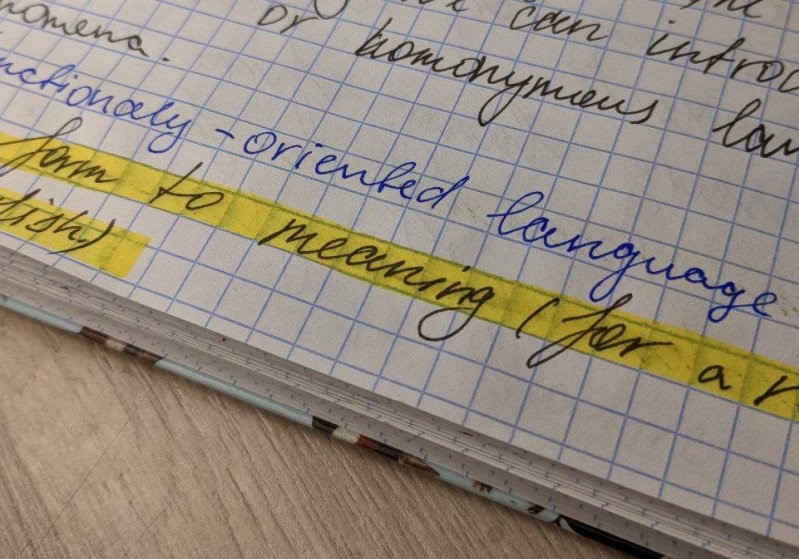 can introd
or homonymous lan
nomena.
nctionaly-oriented language
form to meaning (for a r
lish)